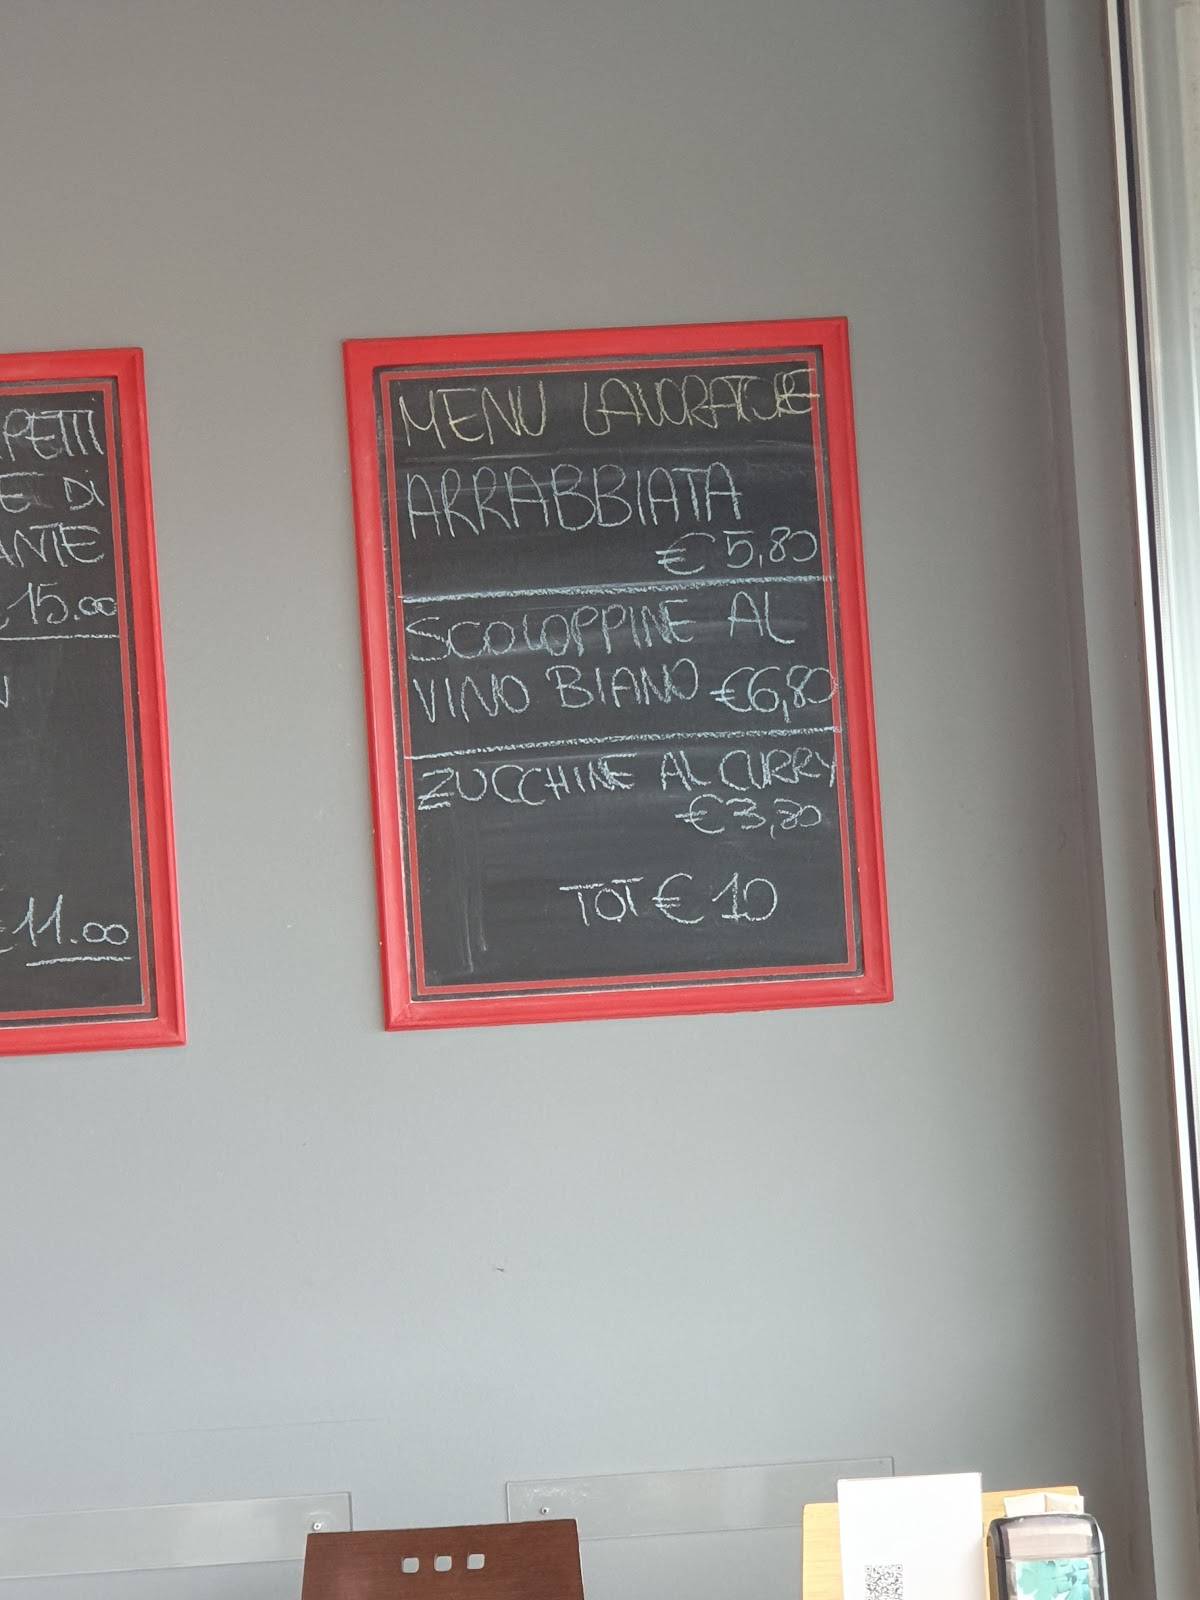 PETTI
E DI
ANTE
15.00
N
€11.00
MENU LAVORATORE
ARRABBIATA
€5,80
SCOLOPPINE AL
VINO BIANO €6,80
ZUCCHINE AL CURRY
€3,80
TOT € 10